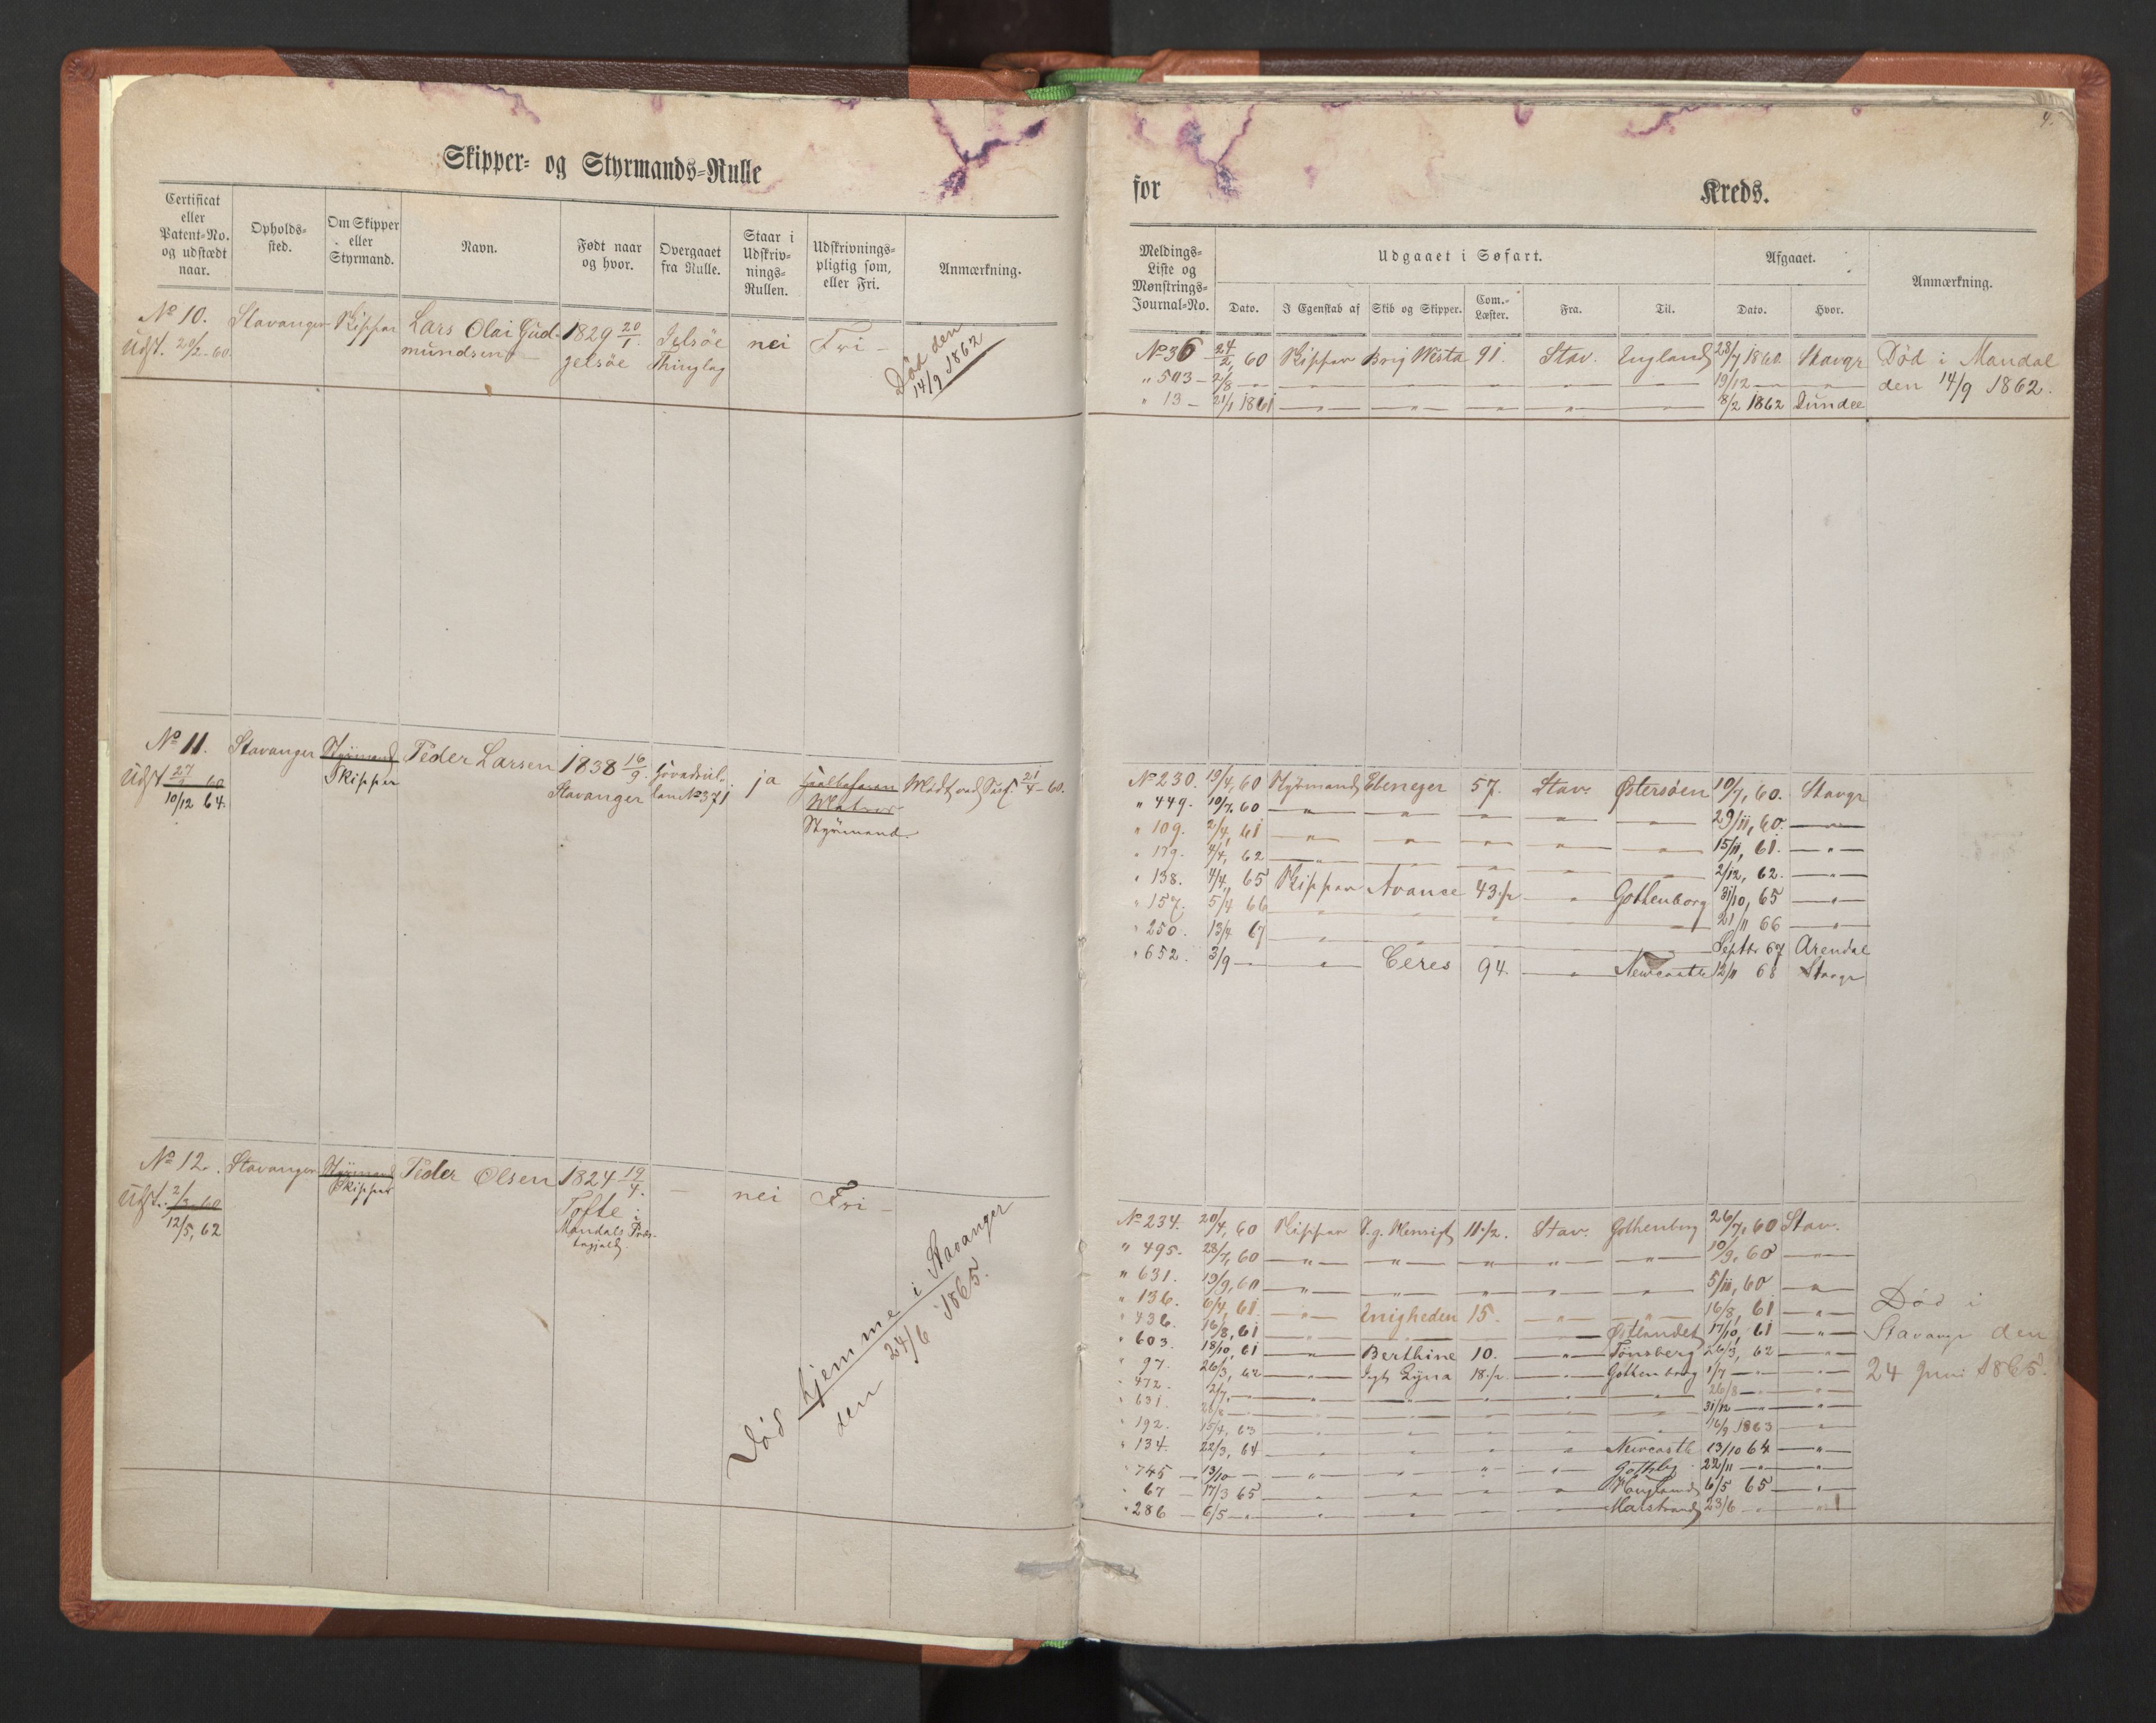 Skipper- og Styrmands-Rulle
Certificat eller Patent-No. og udstædt naar.
Opholds-sted.
Om Skipper eller Styrmand.
Navn.
Født naar og hvor.
Overgaaet fra Rulle.
Staar i Udskriv-nings-Rullen.
Udskrivnings-pligtig som, eller Fri.
Anmærkning.
No 10. Stavanger Skipper Lars Olai Gud- 1829 20/1. Jelsöe nei Fri - Död den
Udst. 20/2 - 60. mundsen Jelsöe Thinglag 14/9 1862
No 11. Stavanger Styrmand Peder Larsen 1838 16/9. ja
Udst 27/2 60 Skipper Stavanger No 371 Matros 21/4 - 60.
10/12 64. Styrmand.
No 12. Stavanger Styrmand Peder Olsen 1824 19/4. - nei Fri -
Udst. 2/3 60 Skipper Tofte i
12/5, 62 Mandals Præs-
tegjeld
Död hjemme i Stavanger
den 24/6 1865.
4.
for Kreds.
Meldings-Liste og Mønstrings-Journal-No.
Udgaaet i Søfart.
Afgaaet.
Anmærkning.
Dato. I Egenskab af Skib og Skipper. Com.-Læster. Fra. Til. Dato. Hvor.
No 36 24/2, 60 Skipper Brig Westa 91. Stav. England 28/7 1860. Stavgr Död i Mandal
" 503 - 2/8 - " - - " - - " - - " - - " - - " - 19/12 - " - - " - den 14/9 1862.
" 13 - 21/1 1861 - " - - " - - " - - " - - " - 8/2 1862 Dundee
No 230. 19/4, 60 Styrmand Ebeneger 57. Stav. Østersöen 10/7, 60. Stavgr
" 449. 10/7, 60 - " - - " - - " - - " - - " - 29/11, 60. - " -
" 109. 2/4, 61 - " - - " - - " - - " - - " - 15/11, 61. - " -
" 179. 4/4, 62 - " - - " - - " - - " - - " - 2/12, 62. - " -
" 138. 4/4, 65 Skipper Avance 43 1/2 - " - Gothenborg 31/10, 65 - " -
" 157. 5/4 66 - " - - " - - " - - " - - " - 21/11 66 - " -
" 250. 13/4 67 - " - - " - - " - - " - - " - Septbr 67 Arendal
" 652. 3/9 - - " - Ceres 94. - " - Newcastle 12/11 68 Stavgr
No 234. 20/4, 60 Skipper 11 1/2. Stav. Gothenborg 26/7, 60 Stav.
" 495. 28/7, 60 - " - - " - - " - - " - - " - 10/9, 60 - " -
" 631. 19/9, 60 - " - - " - - " - - " - - " - 5/11, 60 - " -
" 136. 6/4, 61. - " - Enigheden 15. - " - - " - 16/8, 61 - " - Död i
" 436. 16/8, 61 - " - - " - - " - - " - Østlandet 17/10, 61 - " - Stavangr den
" 603. 18/10, 61 - " - Berthine 10. - " - Tönsberg 26/3, 62 - " - 24 Juni 1865.
" 97. 26/3, 62 - " - Jagt Zyna 18 1/2. - " - Gothenborg 1/7 - " - - " -
" 472. 2/7. - " - - " - - " - - " - - " - - " - 26/8 - " - - " -
" 631. 26/8 - " - - " - - " - - " - - " - 31/12 - " - - " -
" 192. 15/4, 63 - " - - " - - " - - " - - " - 16/9 1863 - " -
" 134. 22/3, 64 - " - - " - - " - - " - Newcastle 13/10 64 - " -
" 745 - 13/10 - - " - - " - - " - - " - Gothbg. 22/11 - " - - " -
" 67 - 17/3 65 - " - - " - - " - - " - 6/5 65 - " -
" 286 - 6/5 - " - - " - - " - - " - - " - Marstrand 23/6 - " - - " -